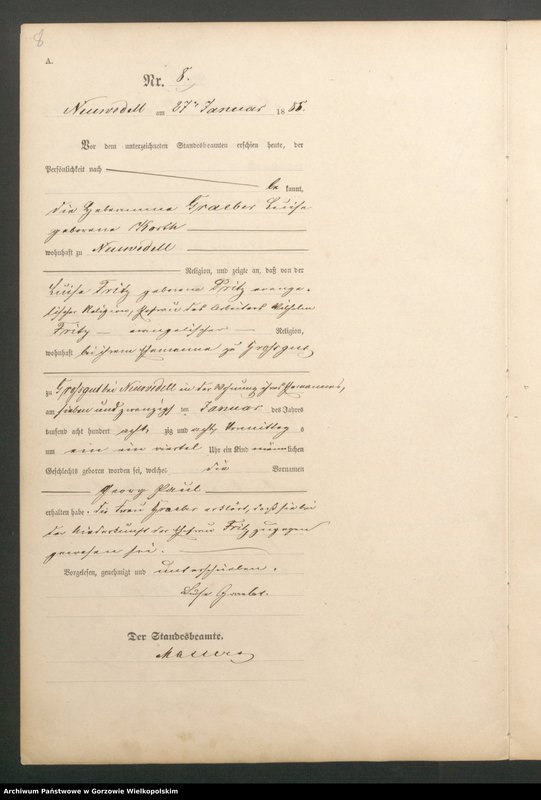 8
A.
Nr. 8.
Neuwedell am 27ten Januar 1888.
Vor dem unterzeichneten Standesbeamten erschien heute, der
Persönlichkeit nach
be kannt,
die Hebeamme Graeber Luise
geborene Korth
wohnhaft zu Neuwedell
Religion, und zeigte an, daß von der
Luise Fritz geborene evange-
lischer Religion, Ehefrau des Arbeiters Wilhelm
Fritz evangelischer Religion,
wohnhaft bei ihrem Ehemanne zu Großgut
zu Großgut bei Neuwedell in der Wohnung ihres Ehemannes,
am sieben und zwanzigsten Januar des Jahres
tausend acht hundert achtzig und acht Vormittags
um ein ein viertel Uhr ein Kind männlichen
Geschlechts geboren worden sei, welches die Vornamen
Georg Paul
erhalten habe. die Frau Graeber erklärt, daß sie bei
der Niederkunft der Ehefrau Fritz zugegen
gewesen sei.
Vorgelesen, genehmigt und unterschrieben.
Luise
Der Standesbeamte.
Archiwum Państwowe w Gorzowie Wielkopolskim